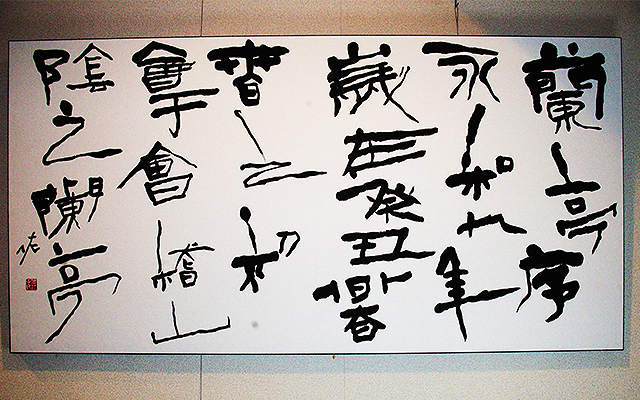 蘭亭序
永和九年
歲在癸丑暮
春之初
會于會稽山
陰之蘭亭